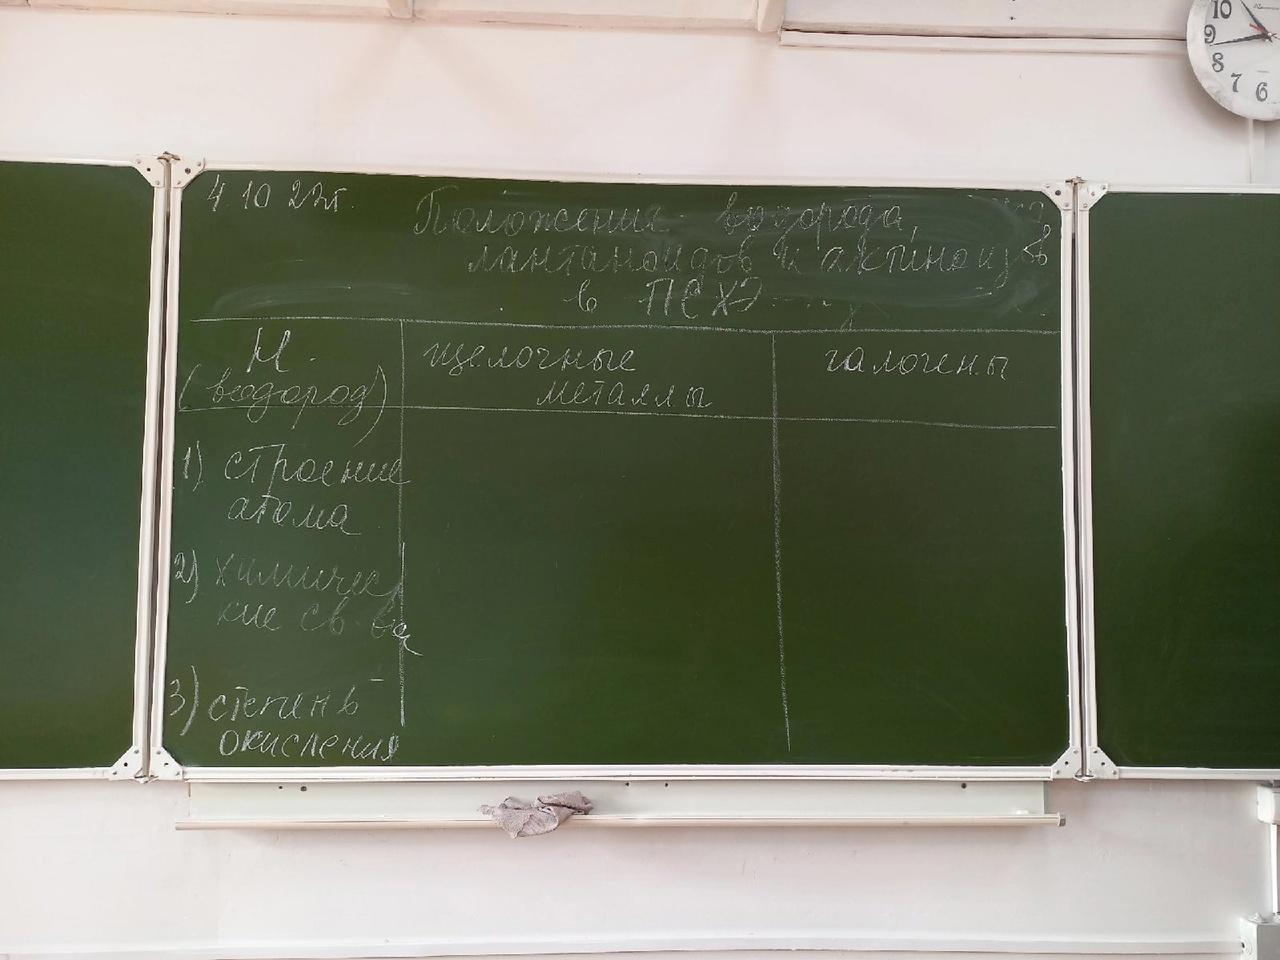 4.10 22г.
Положение водорода,
лантаноидов и актиноидов
в ПСХЭ
H
(водород)
щелочные
металлы
галогены
1) строение
атома
2) химичес
кие св-ва
3) степень
окисления
10
9
8
7
6